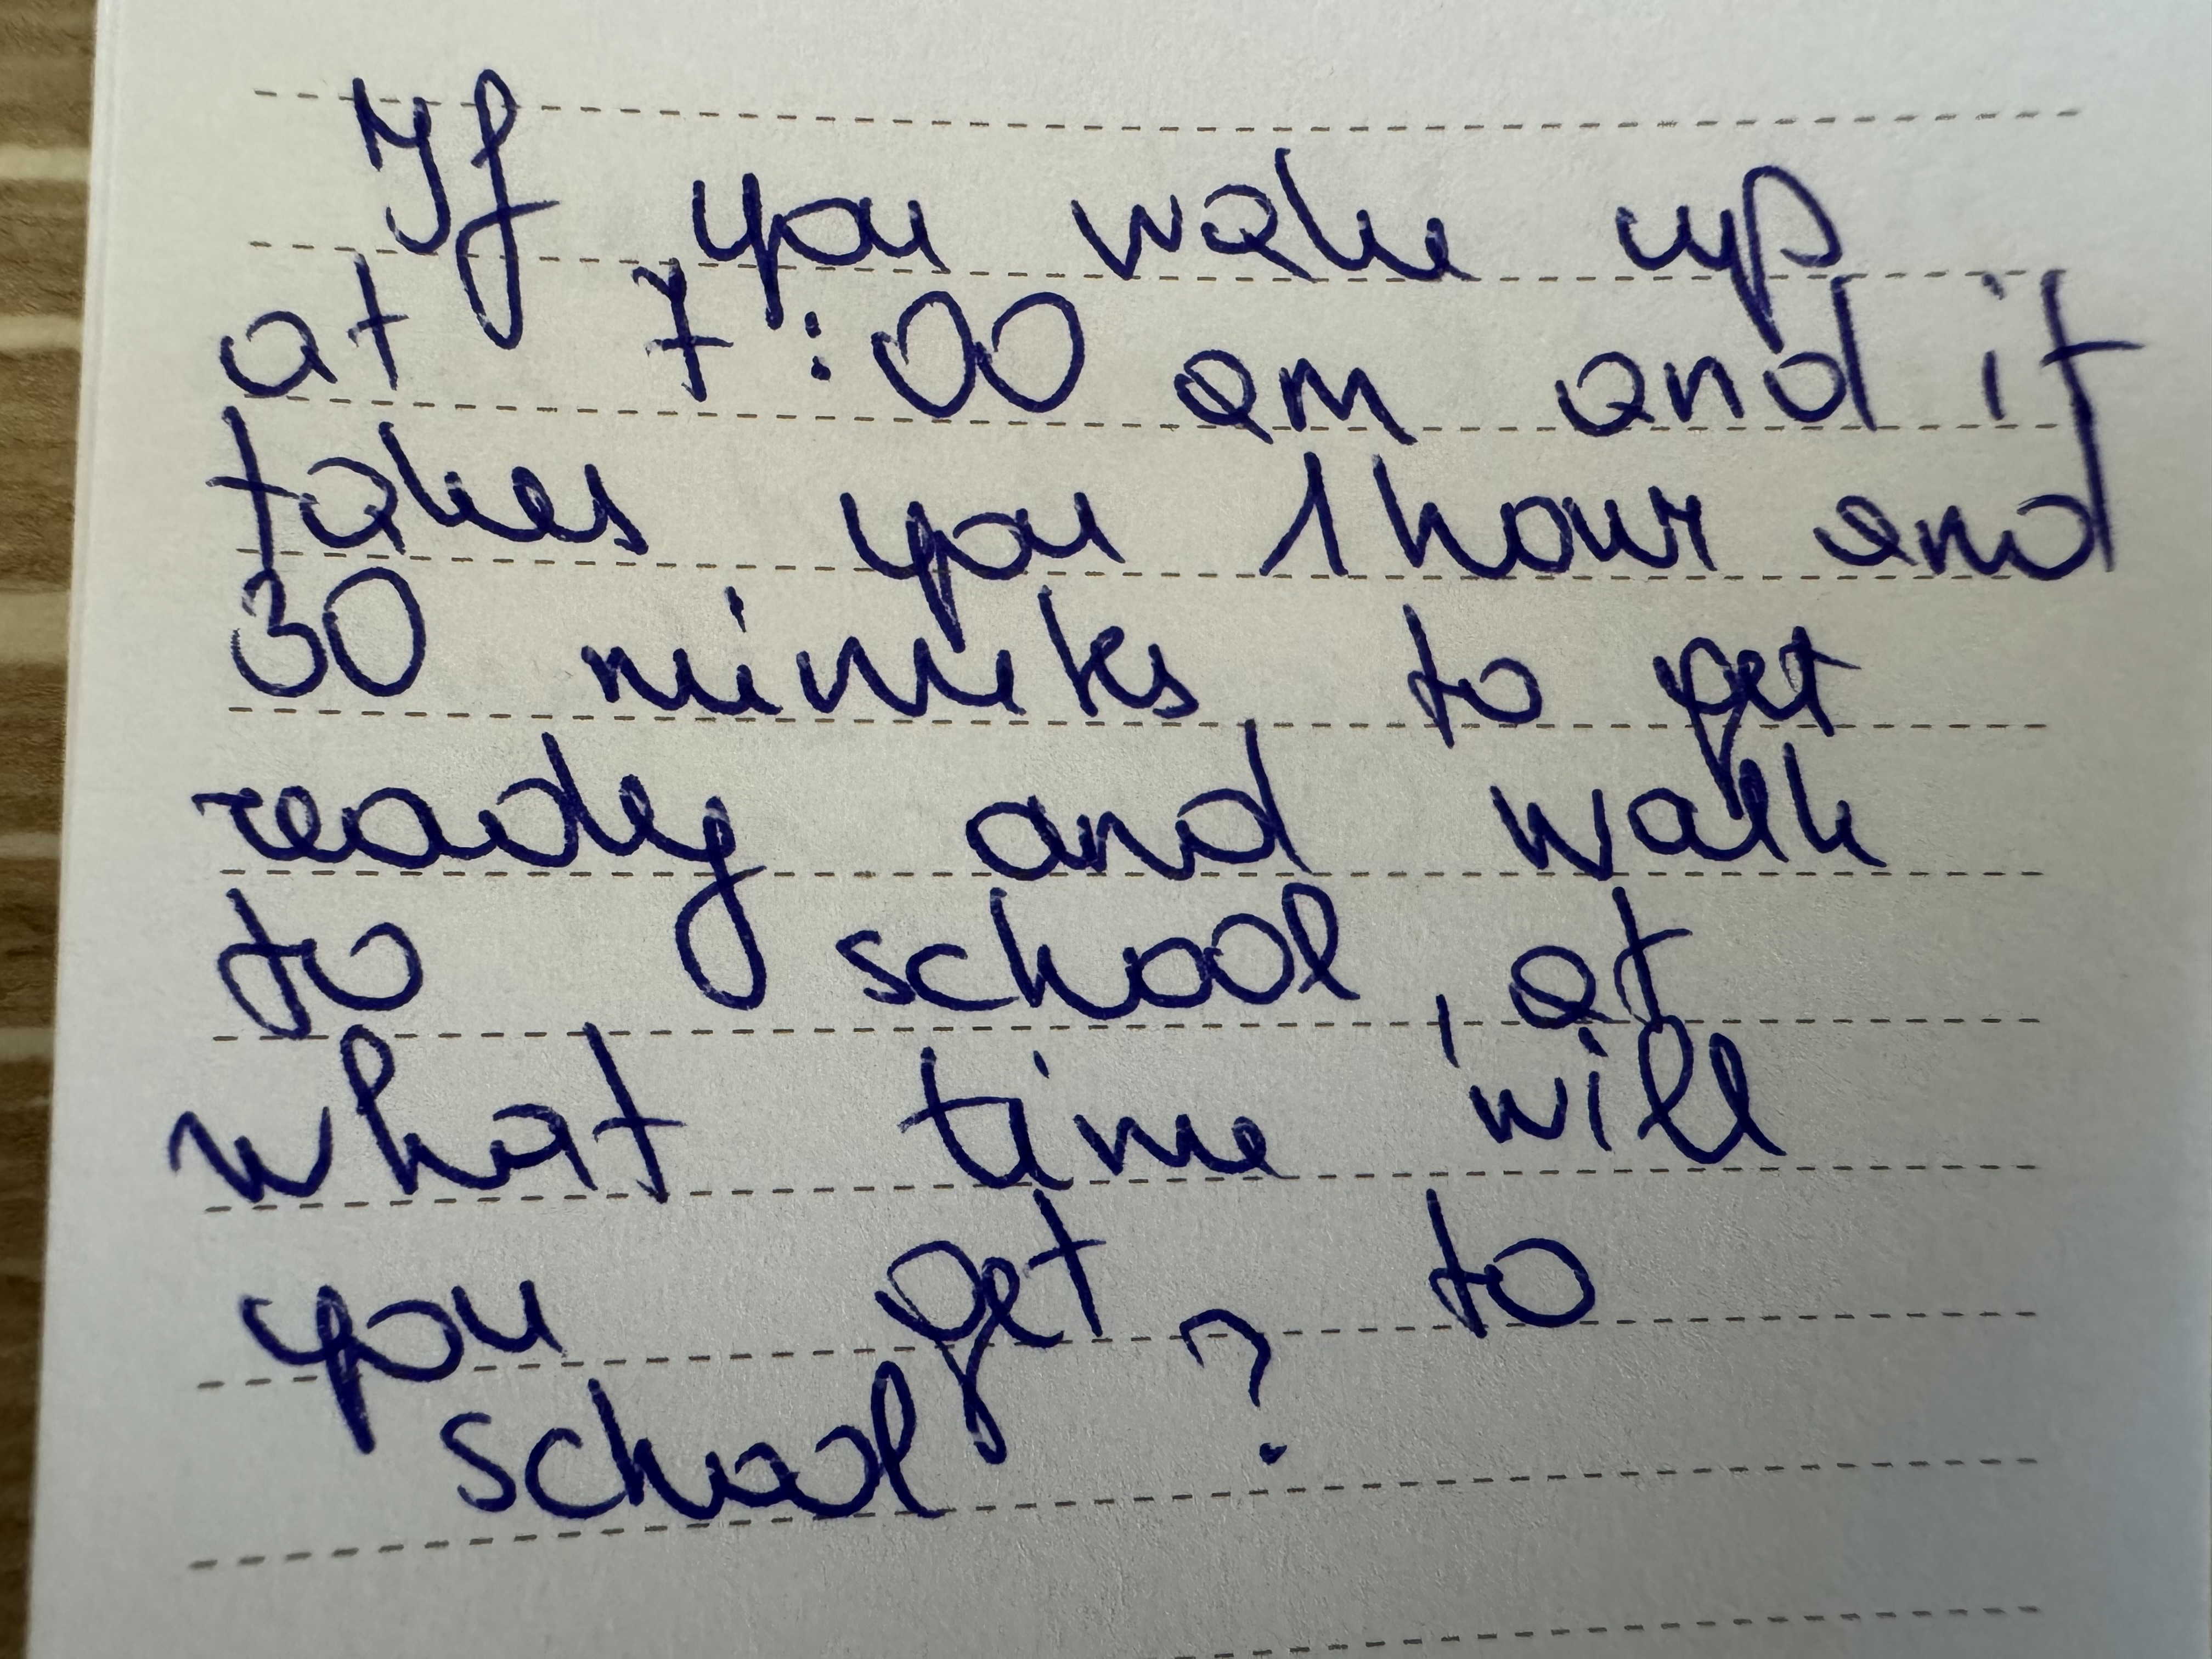 If you wake up
at 7:00 am and it
takes you 1 hour and
30 minutes to get
ready and walk
to school, at
what time will
you get to
school?